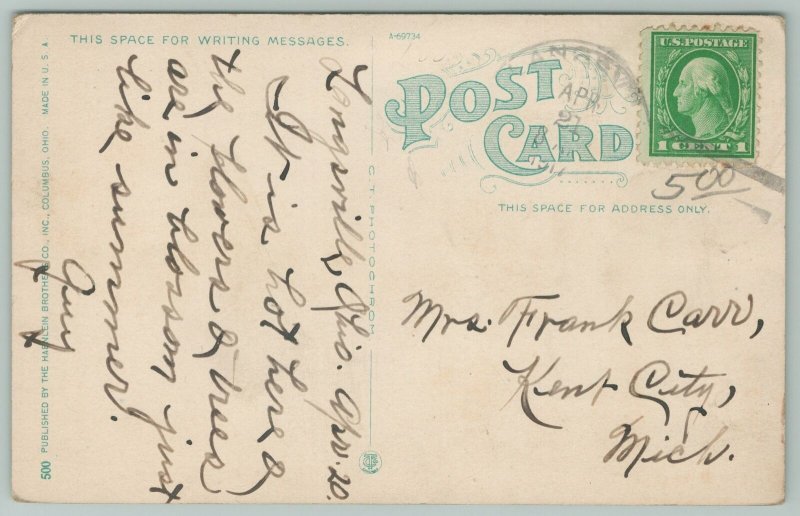 THIS SPACE FOR WRITING MESSAGES.
A-69734
POST CARD
U.S. POSTAGE
1 CENT 1
APR
5 00
THIS SPACE FOR ADDRESS ONLY.
Langsville, Ohio. Apr. 20.
It is hot here &
the flowers & trees
are in blossom just
like summer.
Mrs. Frank Carr,
Kent City,
Mich.
C. T. PHOTOCHROM
500 PUBLISHED BY THE HAENLEIN BROTHERS CO., INC., COLUMBUS, OHIO. MADE IN U. S. A.